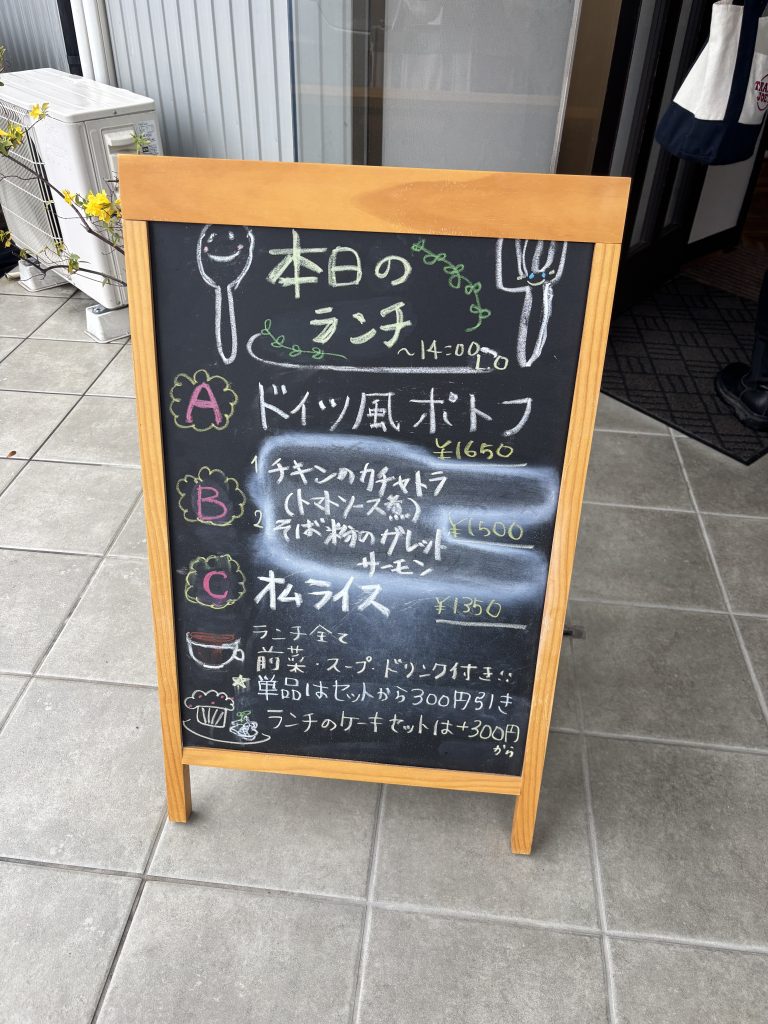 本日の
ランチ
～14:00
LO
A ドイツ風ポトフ
¥1650
B 1 チキンのカチャトラ
(トマトソース煮)
2 そば粉のガレット
¥1500
サーモン
C オムライス ¥1350
ランチ全て
前菜・スープ・ドリンク付き!!
単品はセットから300円引き
ランチのケーキセットは+300円
から